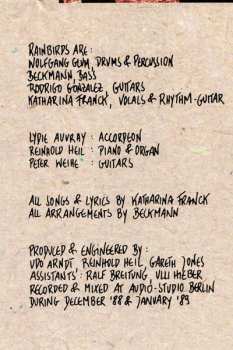 RAINBIRDS ARE:
WOLFGANG GLUM, DRUMS & PERCUSSION
BECKMANN, BASS
RODRIGO GONZALEZ, GUITARS
KATHARINA FRANCK, VOCALS & RHYTHM-GUITAR
LYDIE AUVRAY : ACCORDEON
REINHOLD HEIL : PIANO & ORGAN
PETER WEIHE : GUITARS
ALL SONGS & LYRICS BY KATHARINA FRANCK
ALL ARRANGEMENTS BY BECKMANN
PRODUCED & ENGINEERED BY:
UDO ARNDT, REINHOLD HEIL, GARETH JONES
ASSISTANTS: RALF BREITUNG, ULLI HIEBER
RECORDED & MIXED AT AUDIO-STUDIO BERLIN
DURING DECEMBER '88 & JANUARY '89